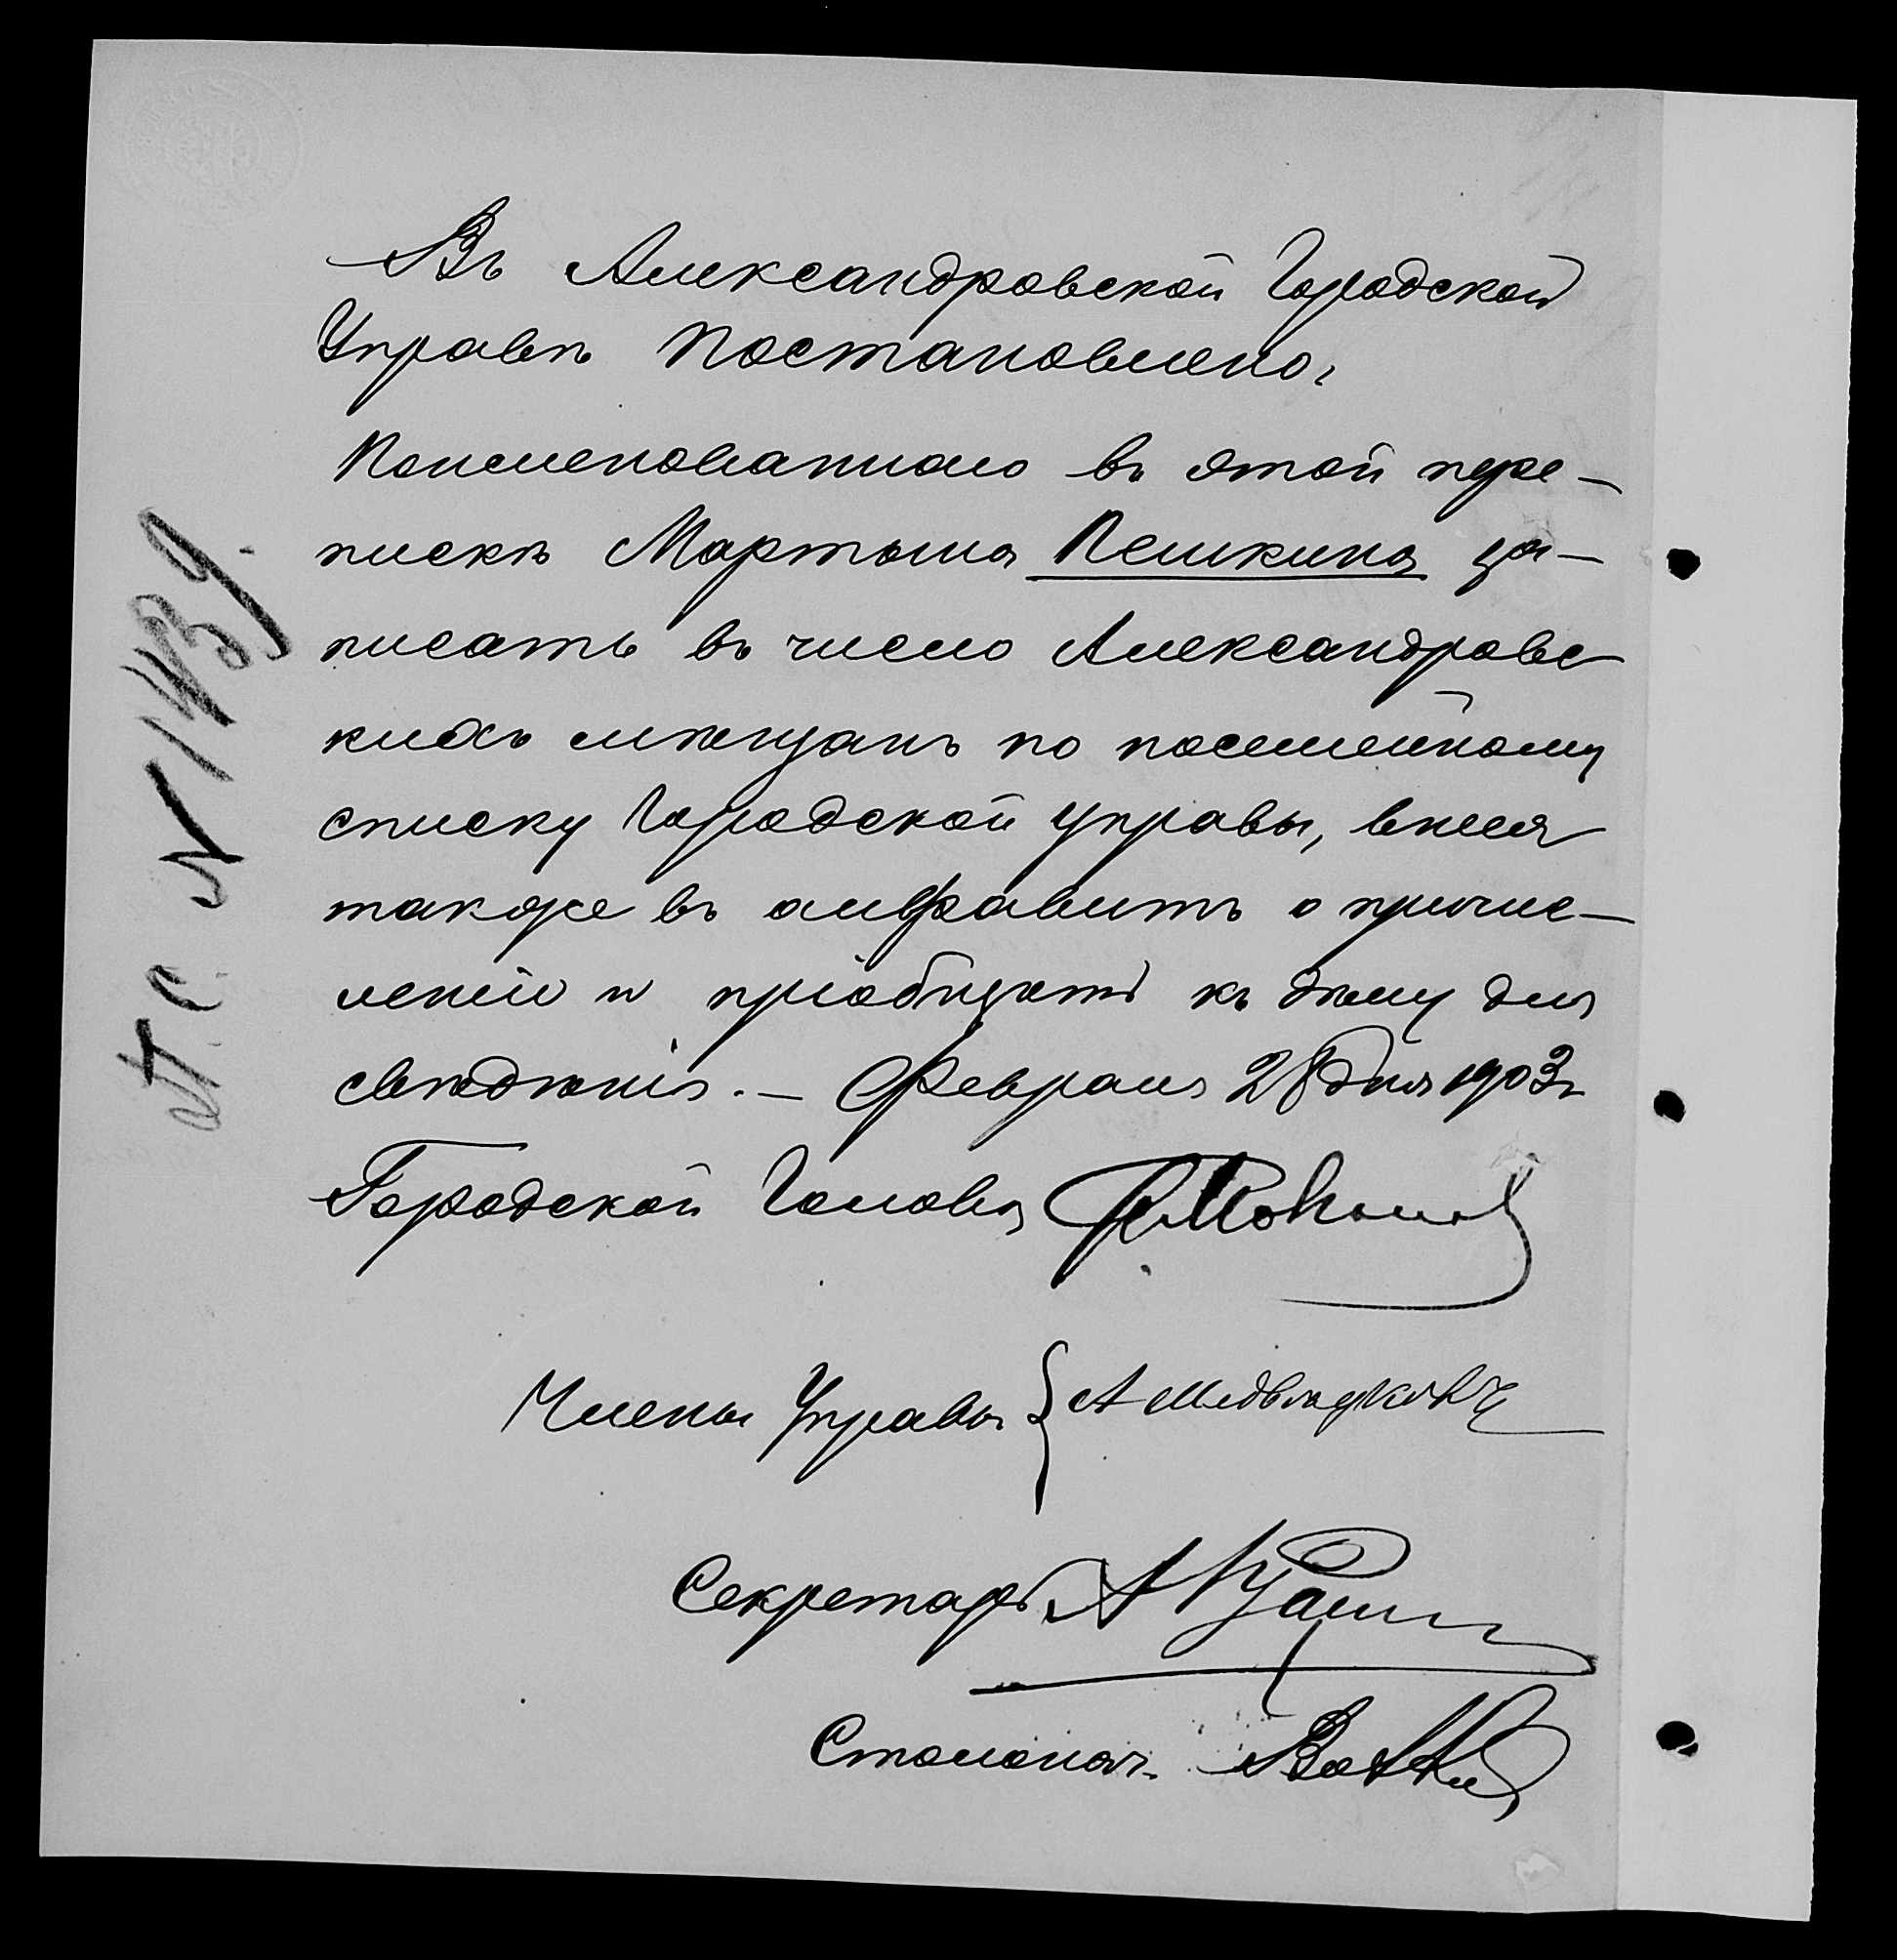 Въ Александровской Городской
Управѣ постановлено,
Поименованнаго въ этой пере-
пискѣ Мартына Пешкина за-
писать въ число Александровс
кихъ мѣщанъ по посемейному
списку Городской управы, внеся
также въ алфавитъ о причис-
леніи и пріобщить къ дѣлу для
свѣдѣнія. - Февраля 28 дня 1903 г
Городской Голова
Члены Управы
Секретарь А
Столонач.
№ 1439.